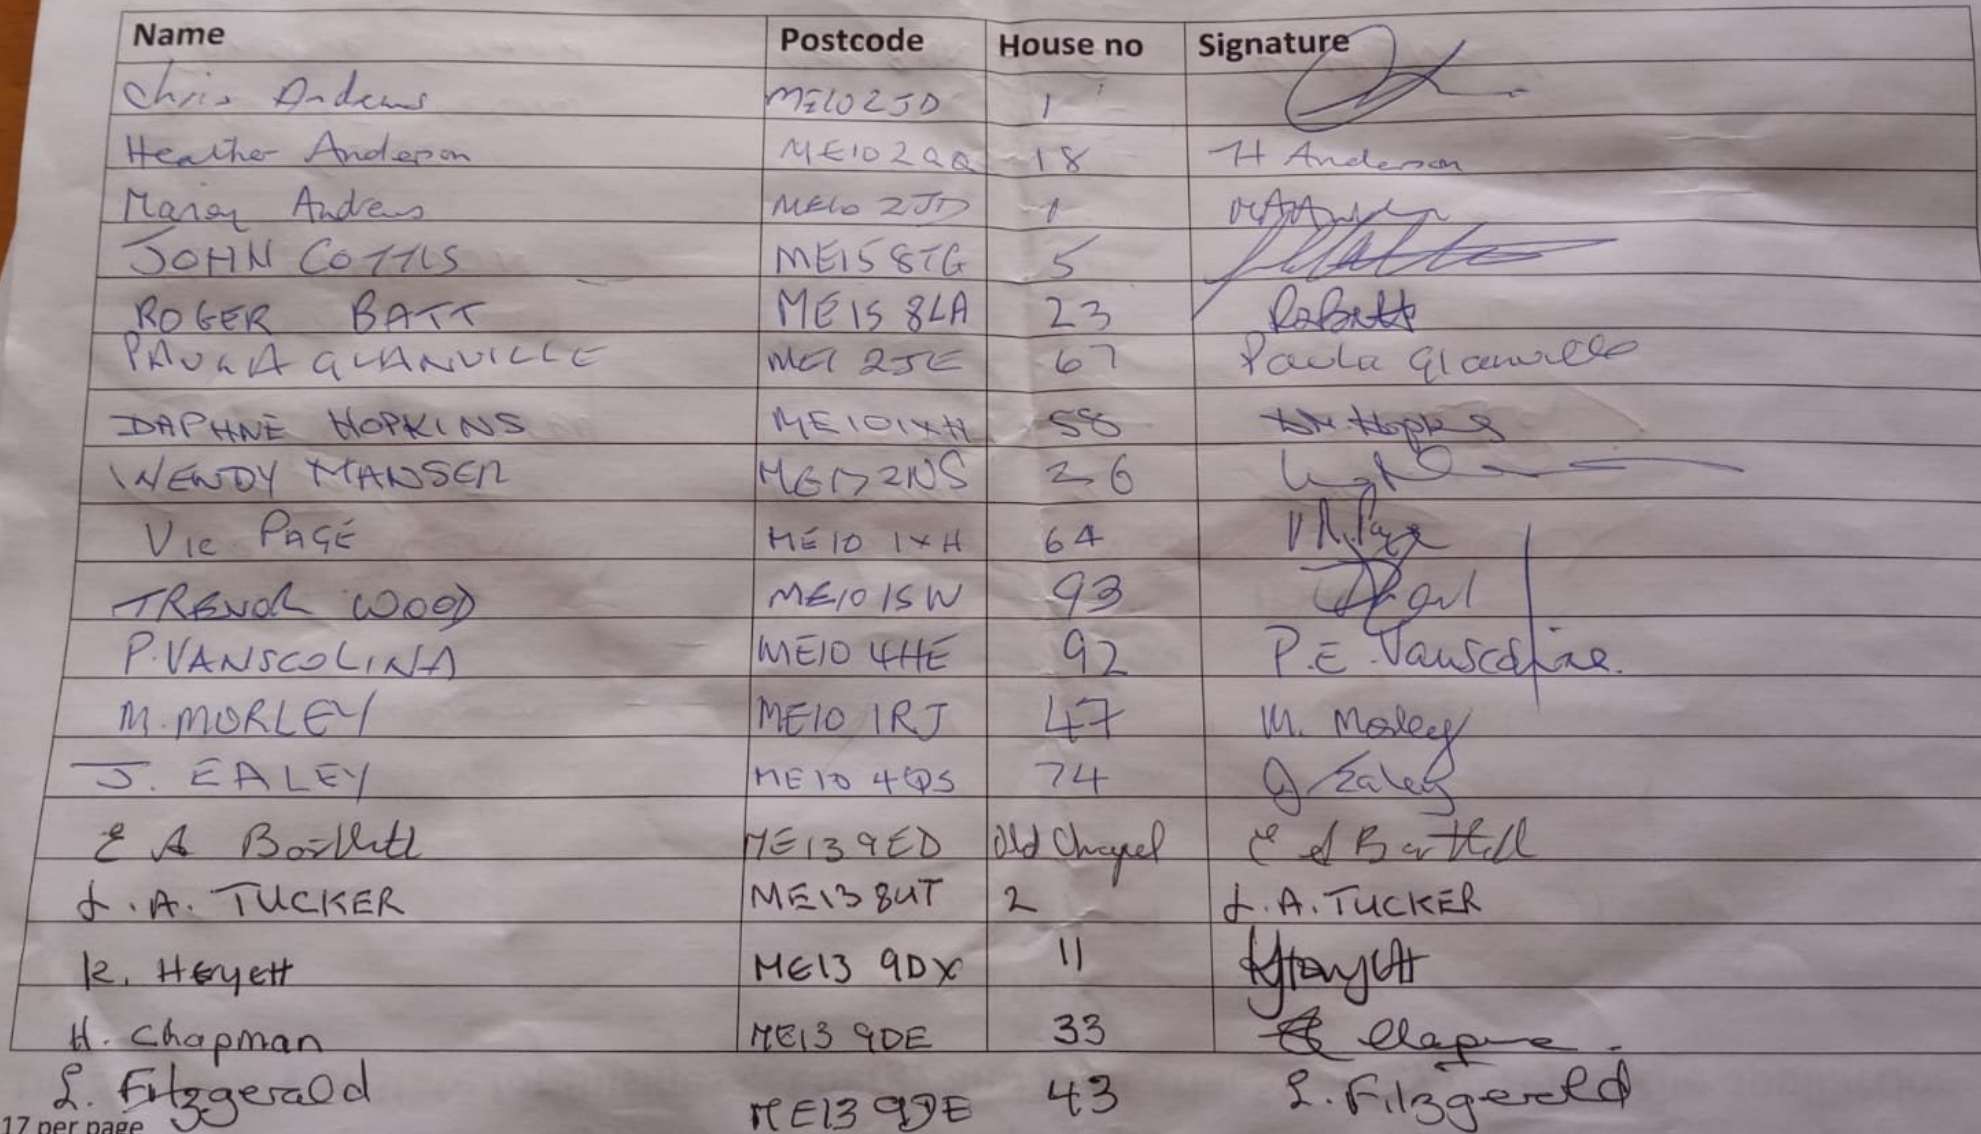 Name Postcode House no Signature
Chris Andrews ME10 2JD 1
Heather Anderson ME10 2QQ 18 H Anderson
Andrews ME10 2JD 1
JOHN COTTIS ME15 8TG 5
ROGER BATT ME15 8LA 23 RoBatt
PAULA GLANVILLE ME1 2JE 67 Paula Glanville
DAPHNE HOPKINS ME10 1XH 58 Hopkins
WENDY MANSER 2NS 26
VIC PAGE ME10 1XH 64 Page
TREVOR WOOD ME10 1SW 93
P. VANSCOLINA ME10 4HE 92 P.E. Vanscolina.
M. MORLEY ME10 1RJ 47 M. Morley
J. EALEY ME10 4QS 74 J Ealey
E A Bartlett ME13 9ED Old Chapel E A Bartlett
L. A. TUCKER ME13 8UT 2 L. A. TUCKER
K. Heyett ME13 9DX 11
H. Chapman ME13 9DE 33
L. Fitzgerald ME13 9DE 43 L. Fitzgerald
17 per page